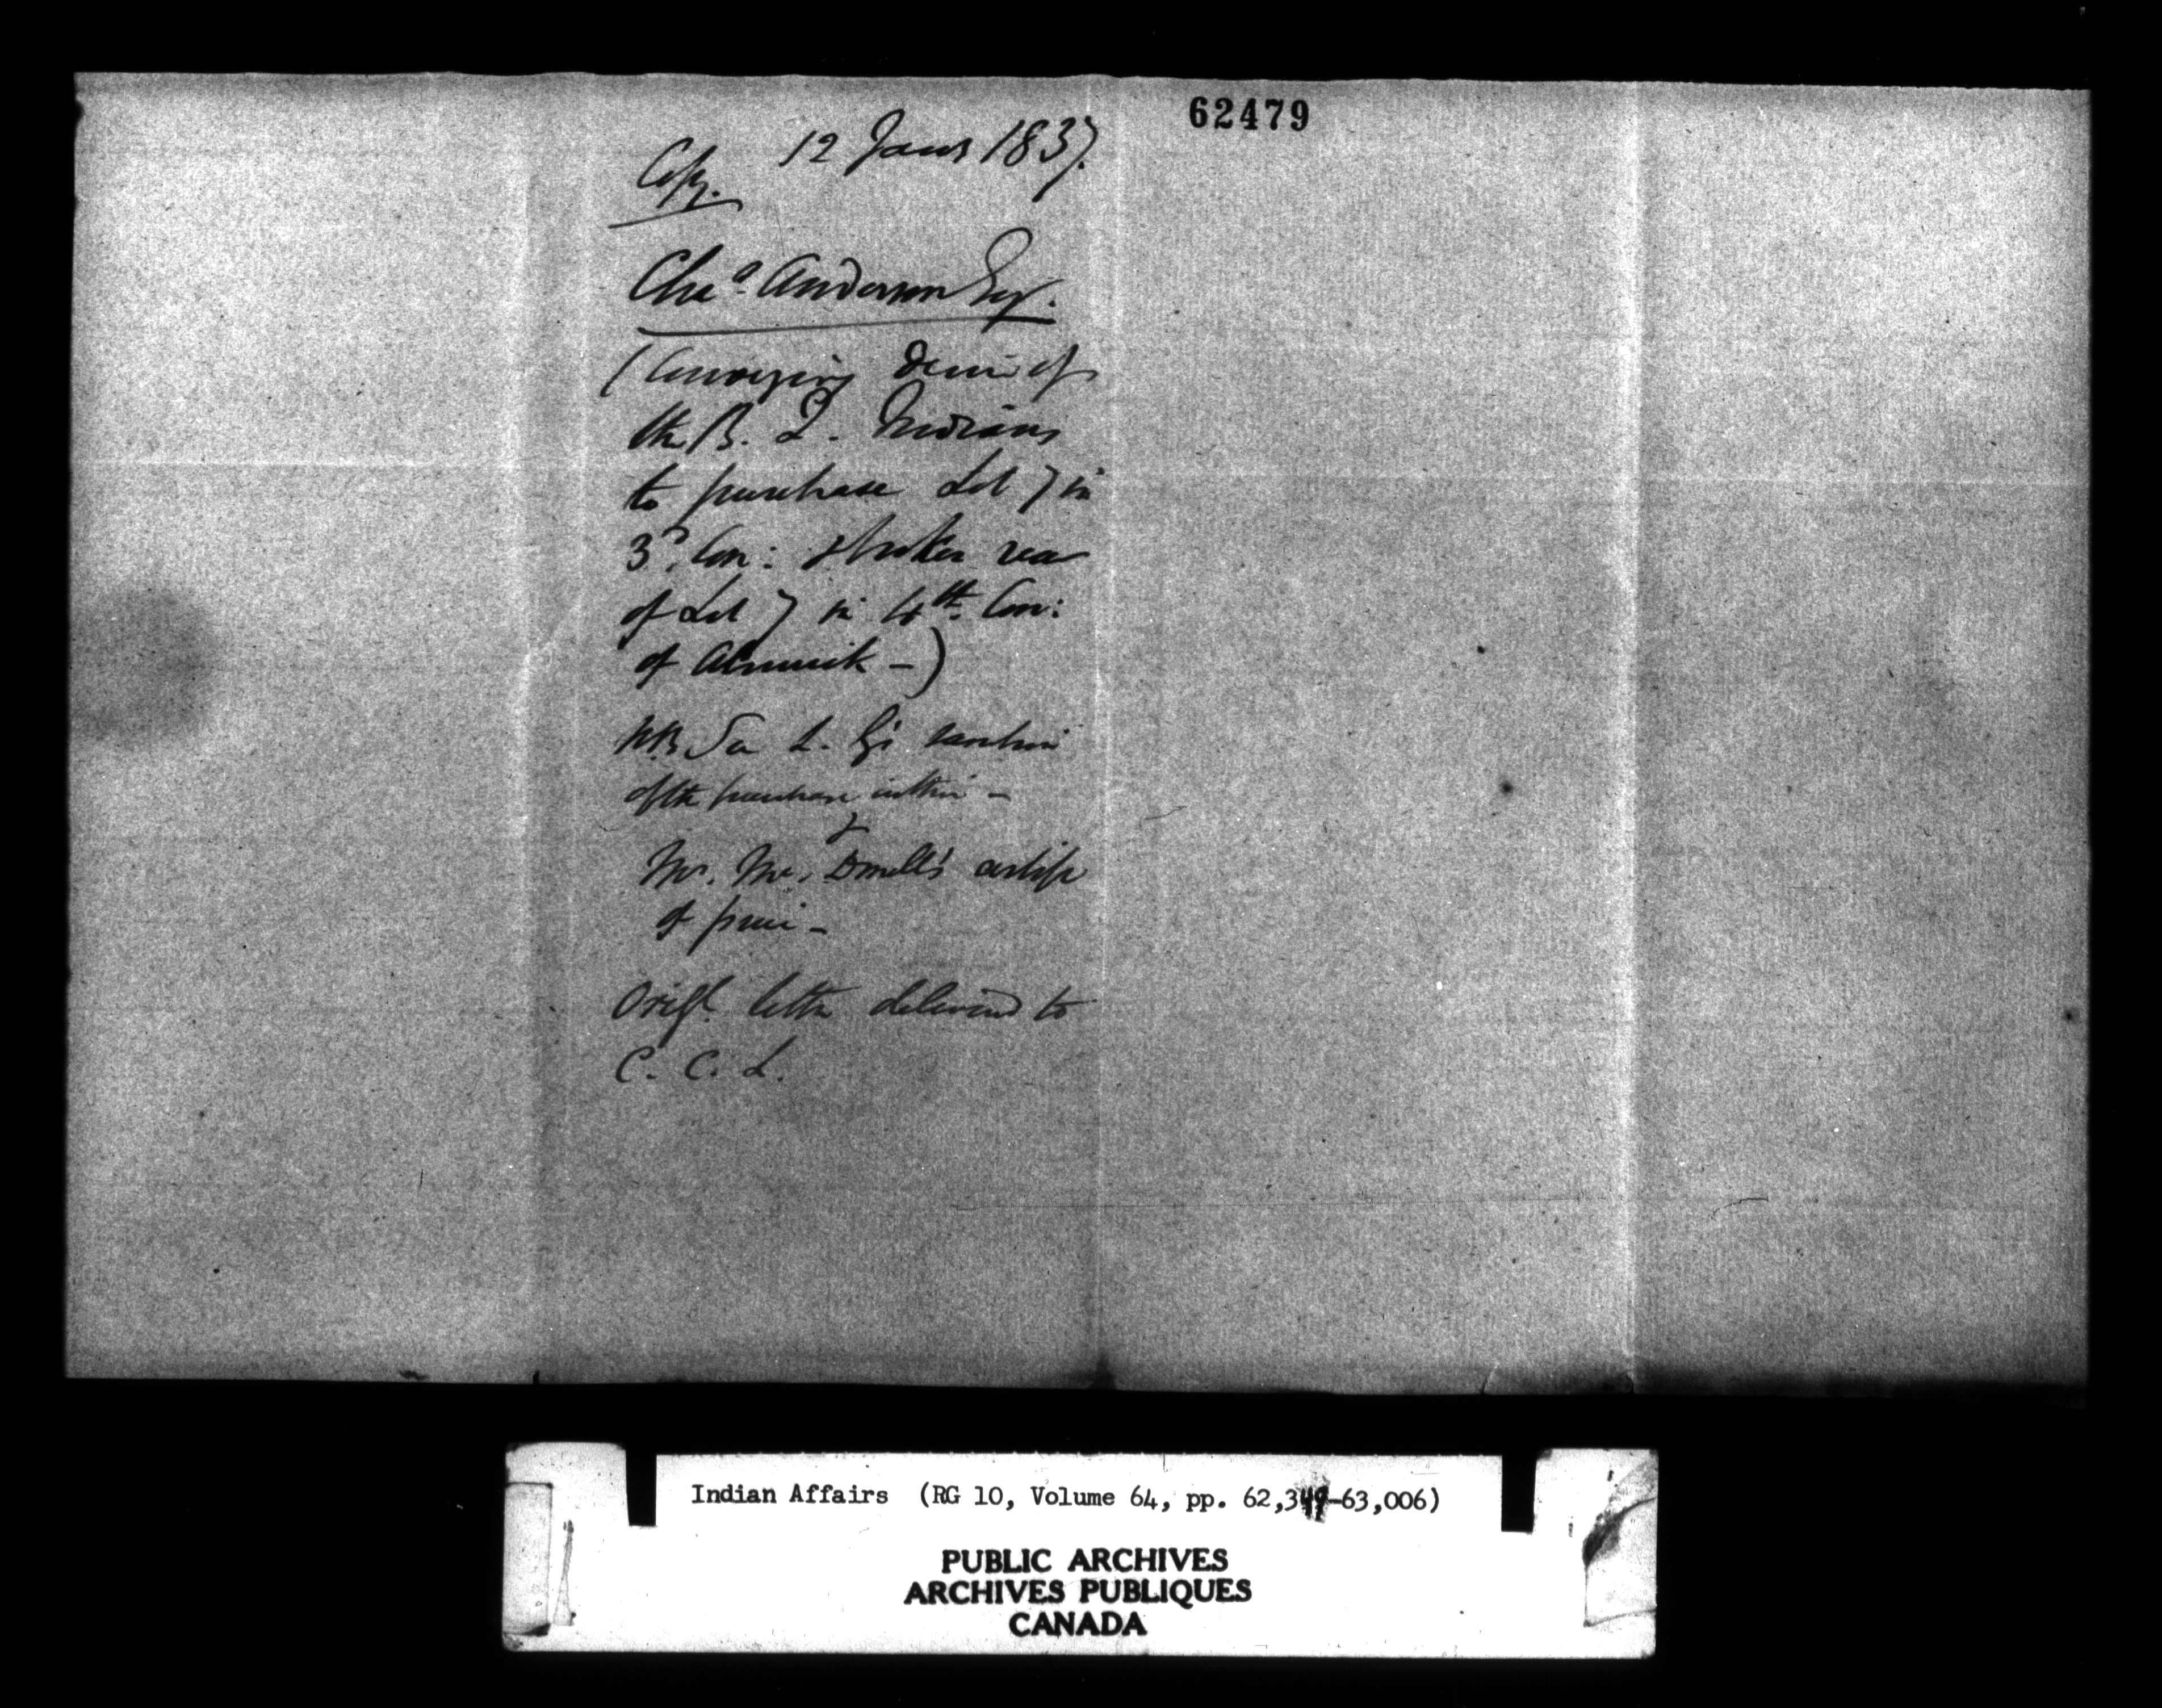 62479
Copy. 12 Jany 1837.
Chas. Anderson Esqr.
(Conveying desire of
the B. L. Indians
to purchase Lot 7 in
3d. Con: & broken rear
of Lot 7 in 4th. Con:
of Alnwick -)
NB See L. G's sanction
of the purchase within -
&
Mr. Mc. Donell's certife
of price -
Origl. letter delivered to
C. C. L.
Indian Affairs (RG 10, Volume 64, pp. 62,349-63,006)
PUBLIC ARCHIVES
ARCHIVES PUBLIQUES
CANADA